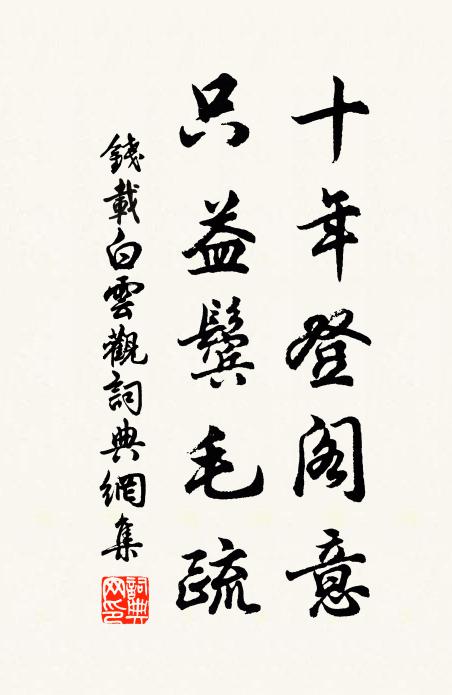 十年登阁意
只益鬓毛疏
錢載白雲觀詞典網集
詞典網印